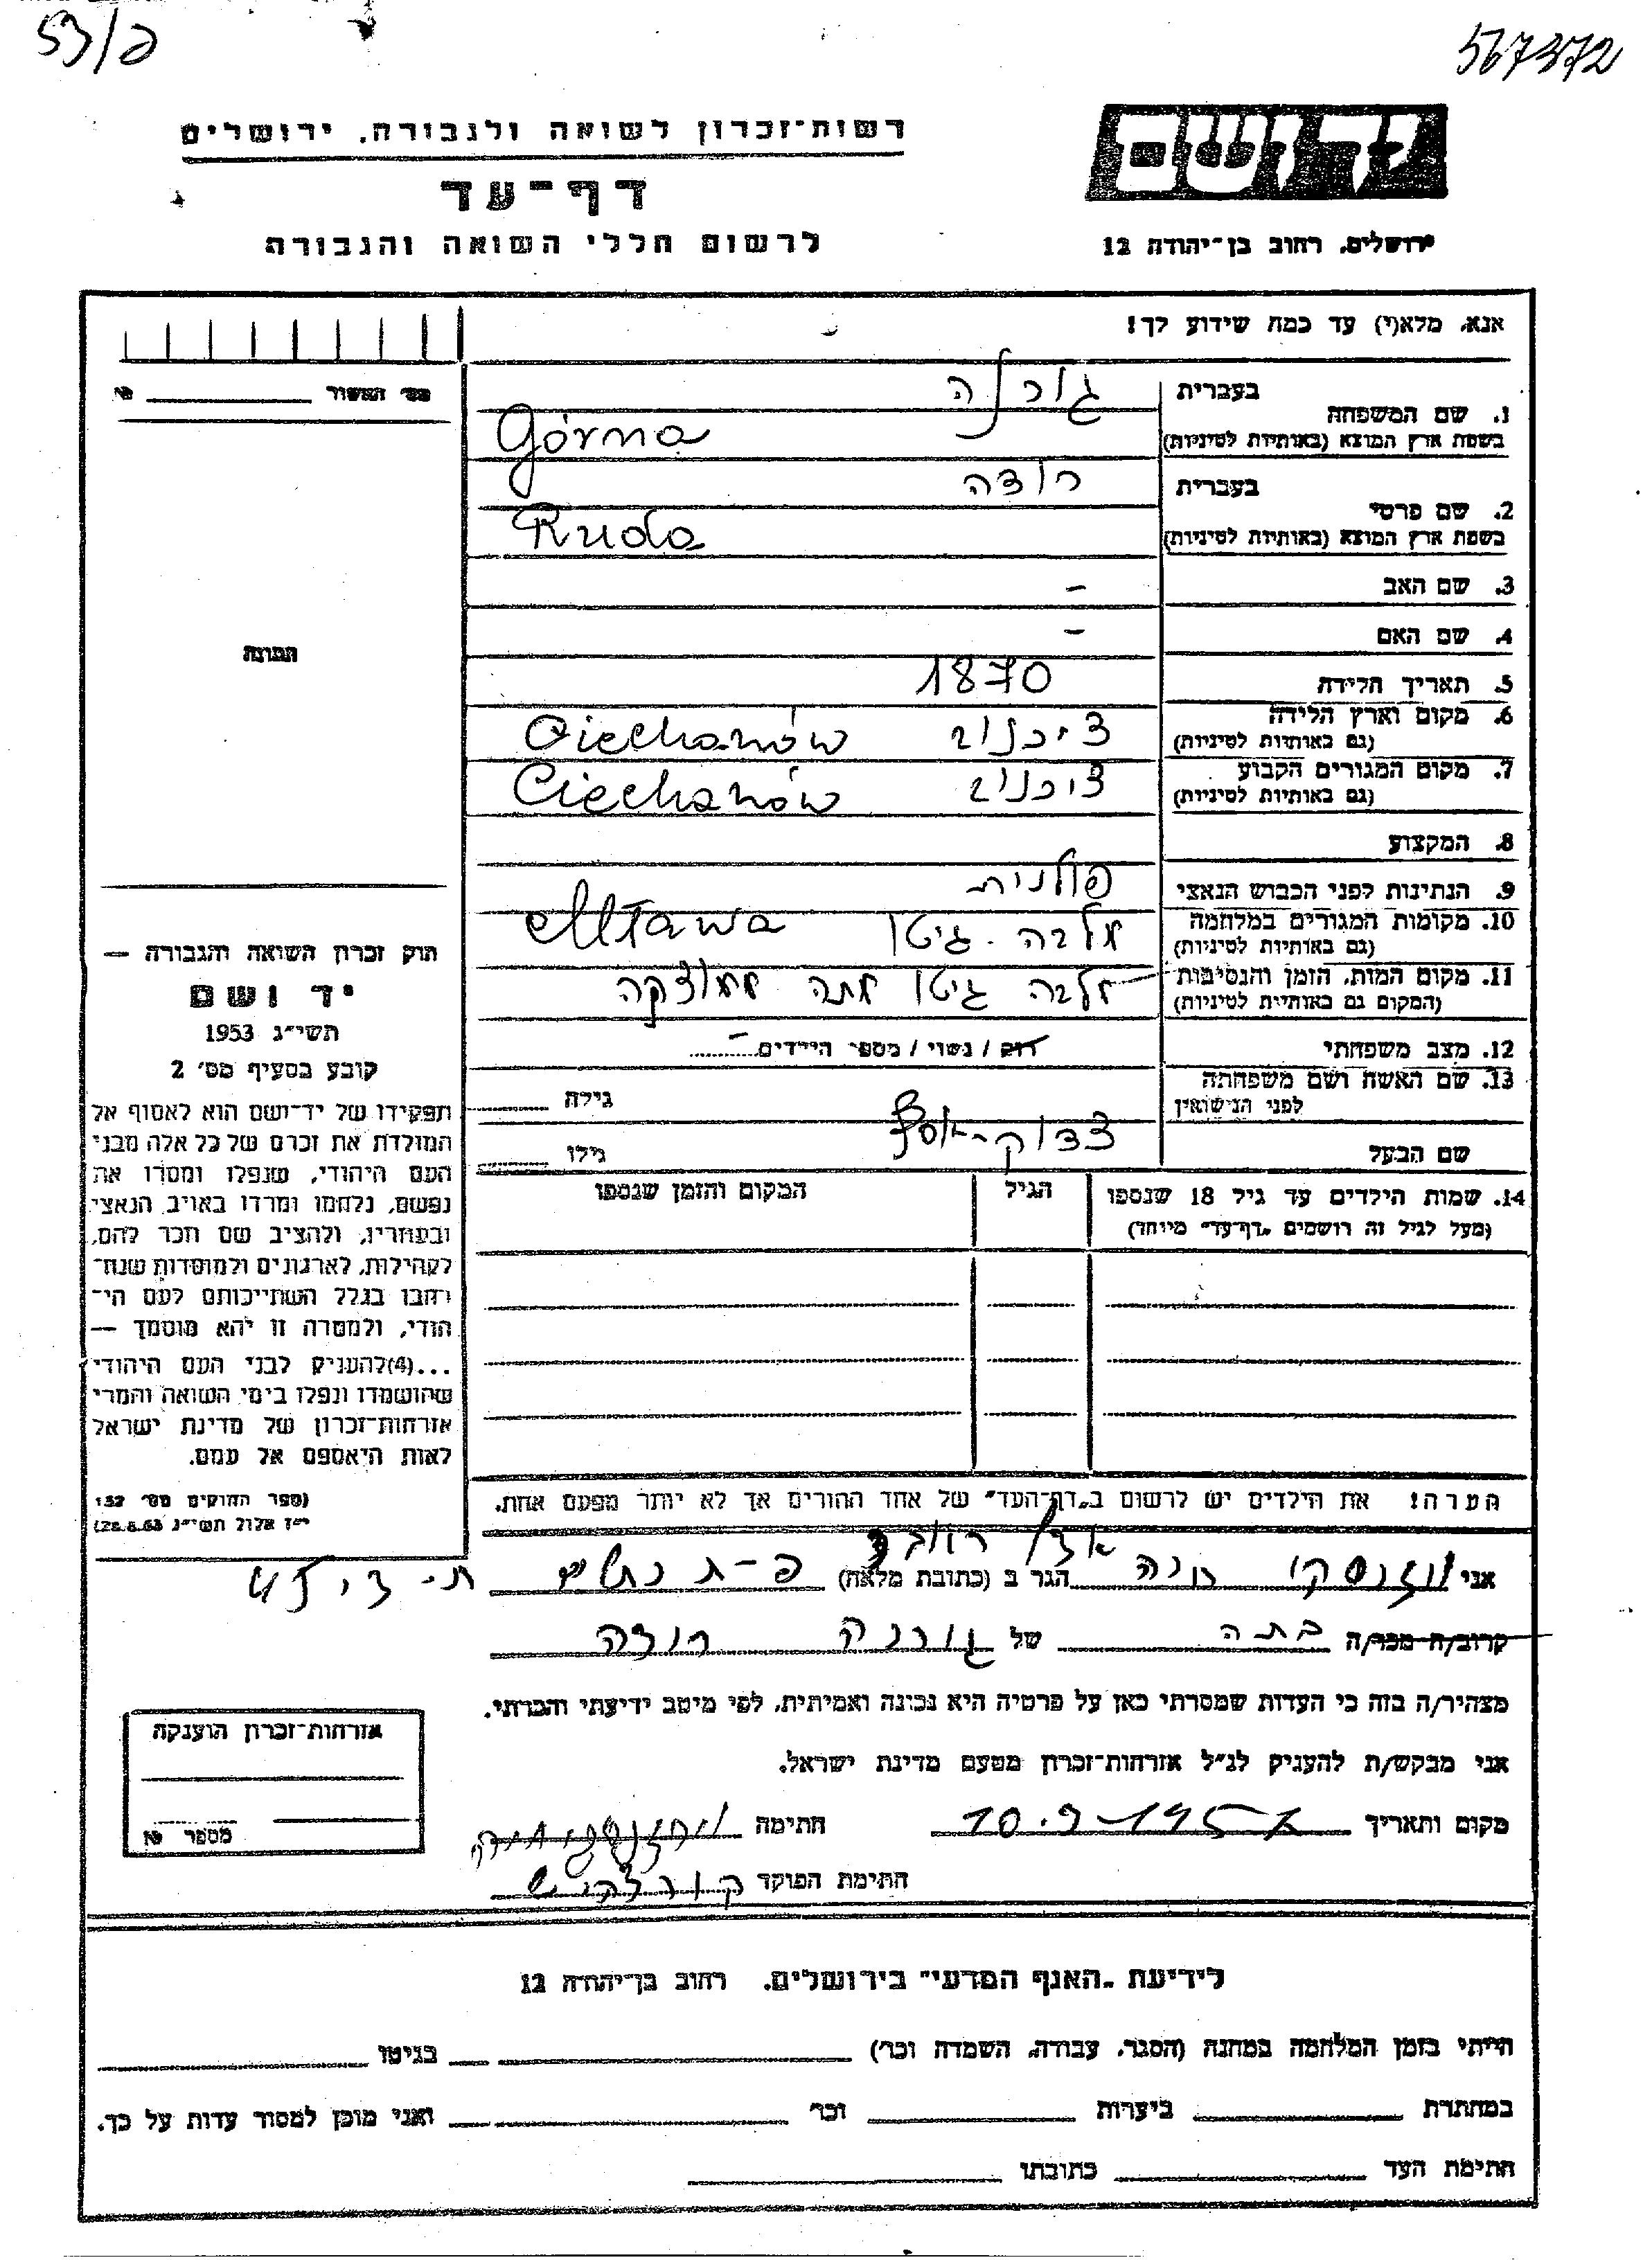 53/פ
567372
יד ושם
רשות־זכרון לשואה ולגבורה, ירושלים
דף־עד
לרשום חללי השואה והגבורה
ירושלים, רחוב בן־יהודה 12
אנא, מלא(י) עד כמה שידוע לך!
מס׳ האשור
בעברית גורנה
1. שם המשפחה
בשפת ארץ המוצא (באותיות לטיניות) Górna
בעברית רודה
2. שם פרטי
בשפת ארץ המוצא (באותיות לטיניות) Ruda
3. שם האב -
4. שם האם -
תמונה
5. תאריך הלידה 1870
6. מקום וארץ הלידה ציכנוב Ciechanów
(גם באותיות לטיניות)
7. מקום המגורים הקבוע ציכנוב Ciechanów
(גם באותיות לטיניות)
8. המקצוע
9. הנתינות לפני הכבוש הנאצי פולנית
10. מקומות המגורים במלחמה מלבה - גיטו Mława
(גם באותיות לטיניות)
11. מקום המות, הזמן והנסיבות מלבה גיטו מתה
(המקום גם באותיות לטיניות)
12. מצב משפחתי רוק / נשוי / מספר הילדים -
13. שם האשה ושם משפחתה
לפני הנישואין גילה
שם הבעל צדוק-יוסף גילו
14. שמות הילדים עד גיל 18 שנספו הגיל המקום והזמן שנספו
(מעל לגיל זה רושמים „דף־עד״ מיוחד)
חוק זכרון השואה והגבורה —
יד ושם
תשי״ג 1953
קובע בסעיף מס׳ 2
תפקידו של יד־ושם הוא לאסוף אל
המולדת את זכרם של כל אלה מבני
העם היהודי, שנפלו ומסרו את
נפשם, נלחמו ומרדו באויב הנאצי
ובעוזריו, ולהציב שם וזכר להם,
לקהילות, לארגונים ולמוסדות שנח־
רבו בגלל השתייכותם לעם הי־
הודי, ולמטרה זו יהא מוסמך —
...(4)להעניק לבני העם היהודי
שהושמדו ונפלו בימי השואה והמרי
אזרחות־זכרון של מדינת ישראל
לאות היאספם אל עמם.
(ספר החוקים מס׳ 132
י״ז אלול תשי״ג 28.8.53)
הערה! את הילדים יש לרשום ב„דף־העד״ של אחד ההורים אך לא יותר מפעם אחת.
אני חיה הגר ב (כתובת מלאה) פ-ת
קרוב/ה מכר/ה בתה של גורנה רודה
מצהיר/ה בזה כי העדות שמסרתי כאן על פרטיה היא נכונה ואמיתית, לפי מיטב ידיעתי והכרתי.
אני מבקש/ת להעניק לנ״ל אזרחות־זכרון מטעם מדינת ישראל.
מקום ותאריך 10.9-195 חתימה
חתימת הפוקד
אזרחות־זכרון הוענקה
מספר
לידיעת „האגף המדעי״ בירושלים, רחוב בן־יהודה 12
הייתי בזמן המלחמה במחנה (הסגר, עבודה, השמדה וכו׳) בגיטו
במחתרת ביערות וכו׳ ואני מוכן למסור עדות על כך.
חתימת העד כתובתו